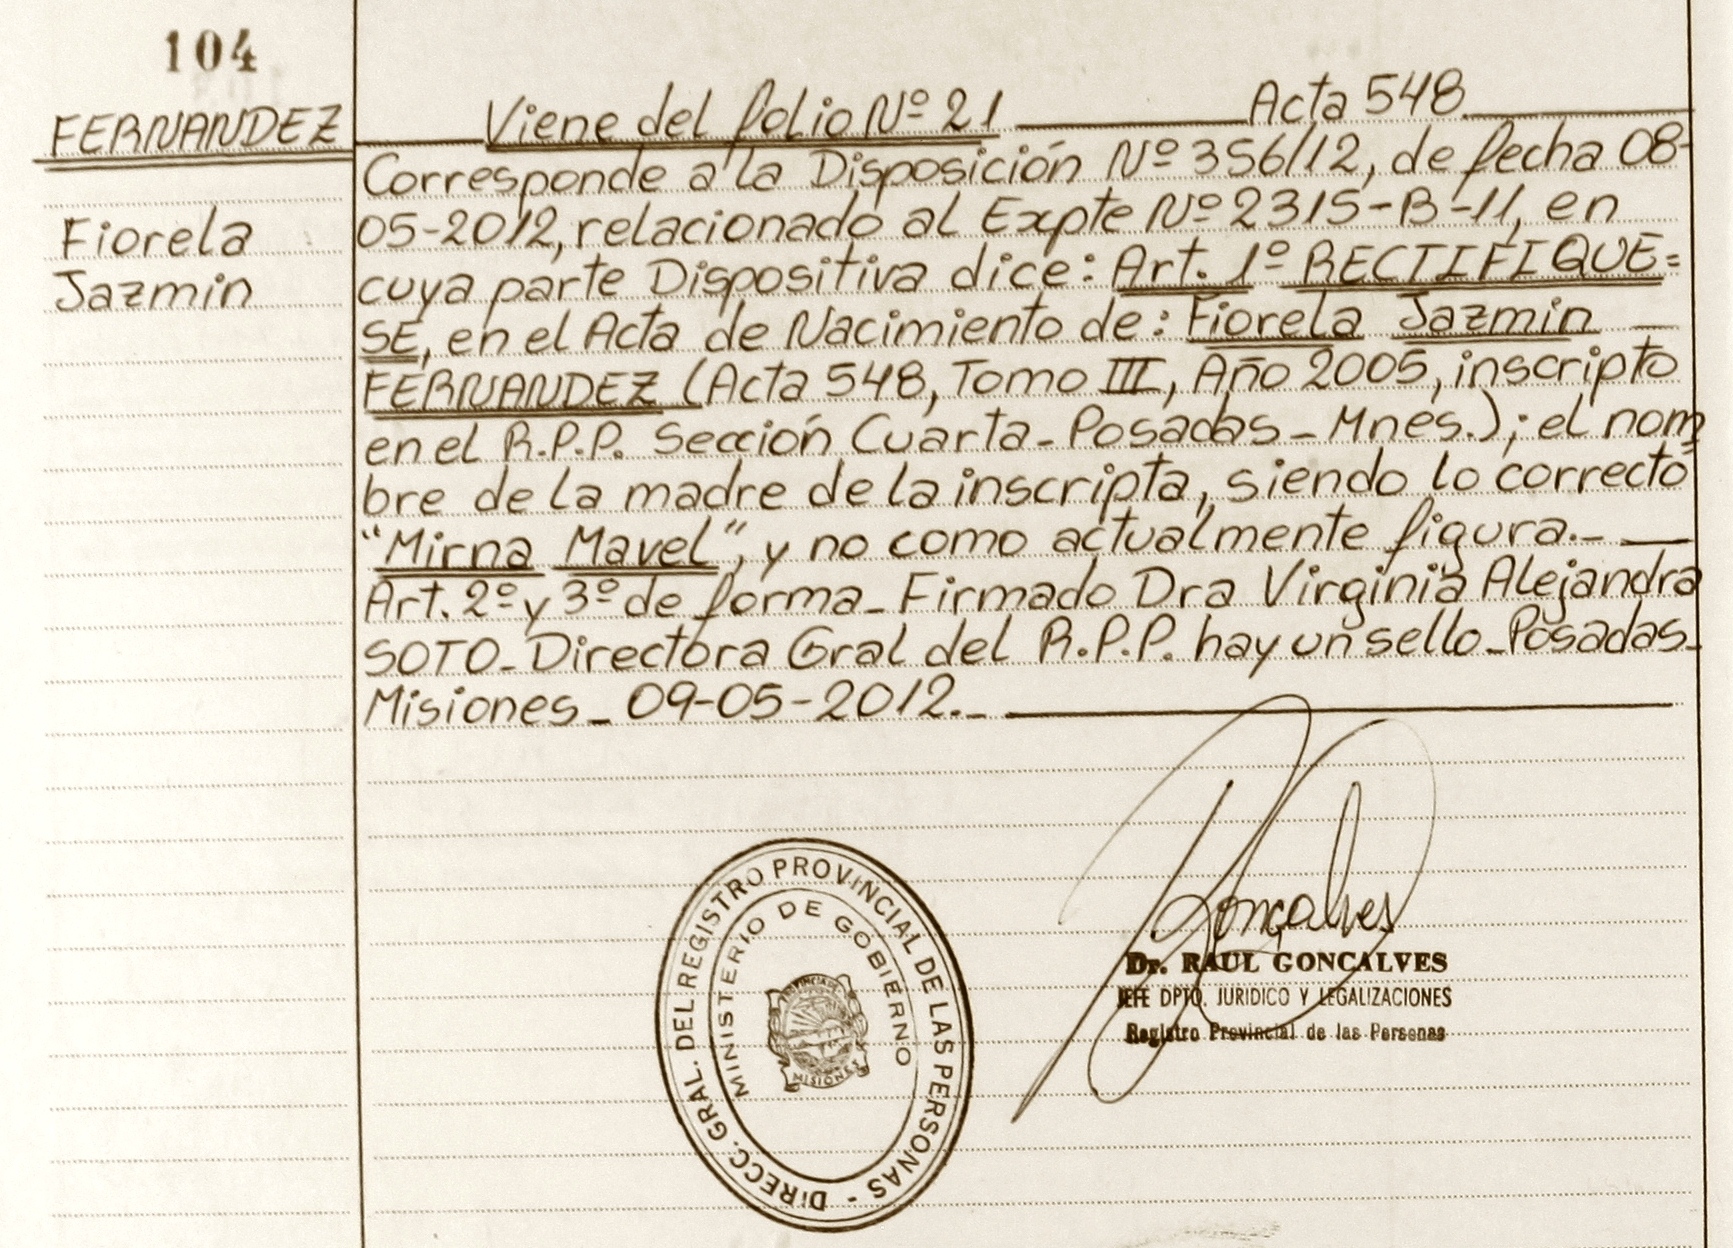 104
FERNANDEZ
Fiorela
Jazmin
Viene del folio Nº 21 Acta 548
Corresponde a la Disposición Nº 356/12, de fecha 08-
05-2012, relacionado al Expte Nº 2315-B-11, en
cuya parte Dispositiva dice: Art. 1º RECTIFIQUE=
SE, en el Acta de Nacimiento de: Fiorela Jazmin
FERNANDEZ (Acta 548, Tomo III, Año 2005, inscripto
en el R.P.P. Sección Cuarta_Posadas_Mnes.); el nom
bre de la madre de la inscripta, siendo lo correcto
"Mirna Mavel", y no como actualmente figura._
Art. 2º y 3º de forma_ Firmado Dra Virginia Alejandra
SOTO_Directora Gral del R.P.P. hay un sello_Posadas_
Misiones_ 09-05-2012._
Gonçalves
Dr. RAUL GONCALVES
JEFE DPTO. JURIDICO Y LEGALIZACIONES
Registro Provincial de las Personas
DIRECC. GRAL. DEL REGISTRO PROVINCIAL DE LAS PERSONAS -
MINISTERIO DE GOBIERNO
PROVINCIA DE
MISIONES